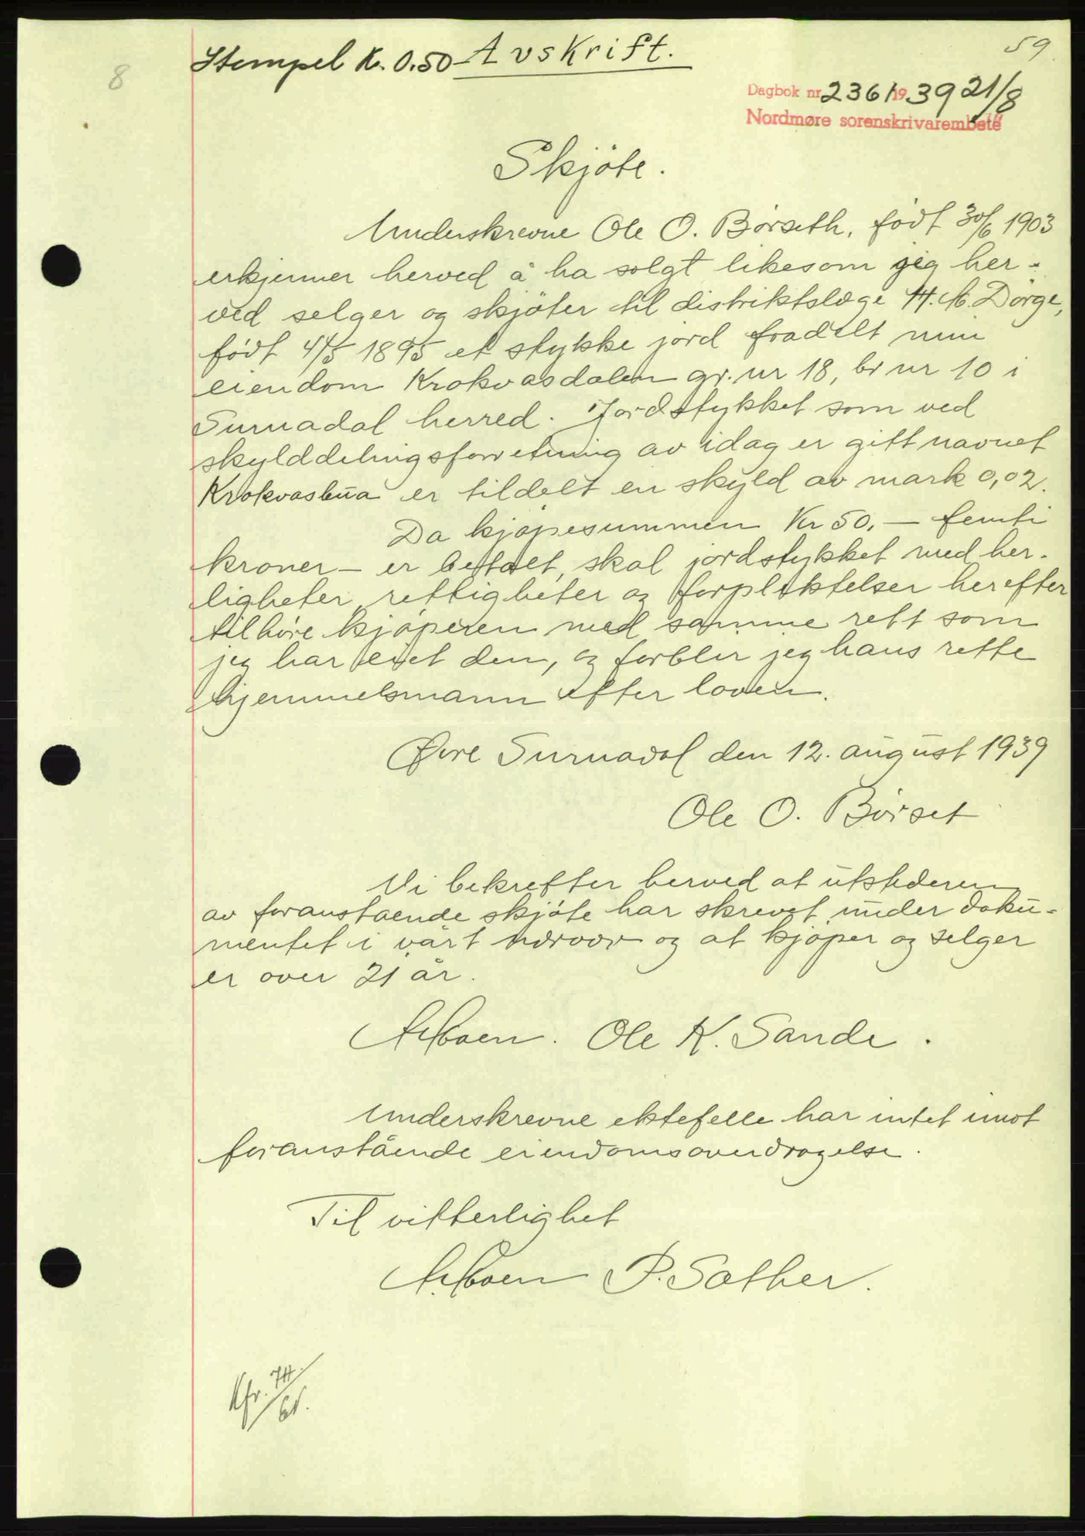 59
8
Stempel Kr. 0.50 Avskrift.
Dagbok nr 2361 1939 21/8
Nordmøre sorenskrivarembete
Skjöte.
Underskrevne Ole O. Börseth, født 30/6 1903
erkjenner herved å ha solgt likesom jeg her-
ved selger og skjöter til distriktslæge H. M. Dörge,
født 4/5 1895 et stykke jord fradelt min
eiendom Krokvasdalen gr. nr 18, br nr 10 i
Surnadal herred. Jordstykket som ved
skylddelingsforretning av idag er gitt navnet
Krokvasbua er tildelt en skyld av mark 0,02.
Da kjöpesummen Kr 50.— femti
kroner — er betalt, skal jordstykket med her-
ligheter, rettigheter og forpliktelser herefter
tilhöre kjöperen med samme rett som
jeg har eiet den, og forblir jeg hans rette
hjemmelsmann efter loven.
Övre Surnadal den 12. august 1939
Ole O. Börset
Vi bekrefter herved at utstederen
av foranstaende skjöte har skrevet under doku-
mentet i vårt nærvær og at kjöper og selger
er over 21 år.
Ole K. Sande.
Underskrevne ektefelle har intet imot
foranstående eiendomsoverdragelse.
Til vitterlighet
P. Sæther.
Kfr.